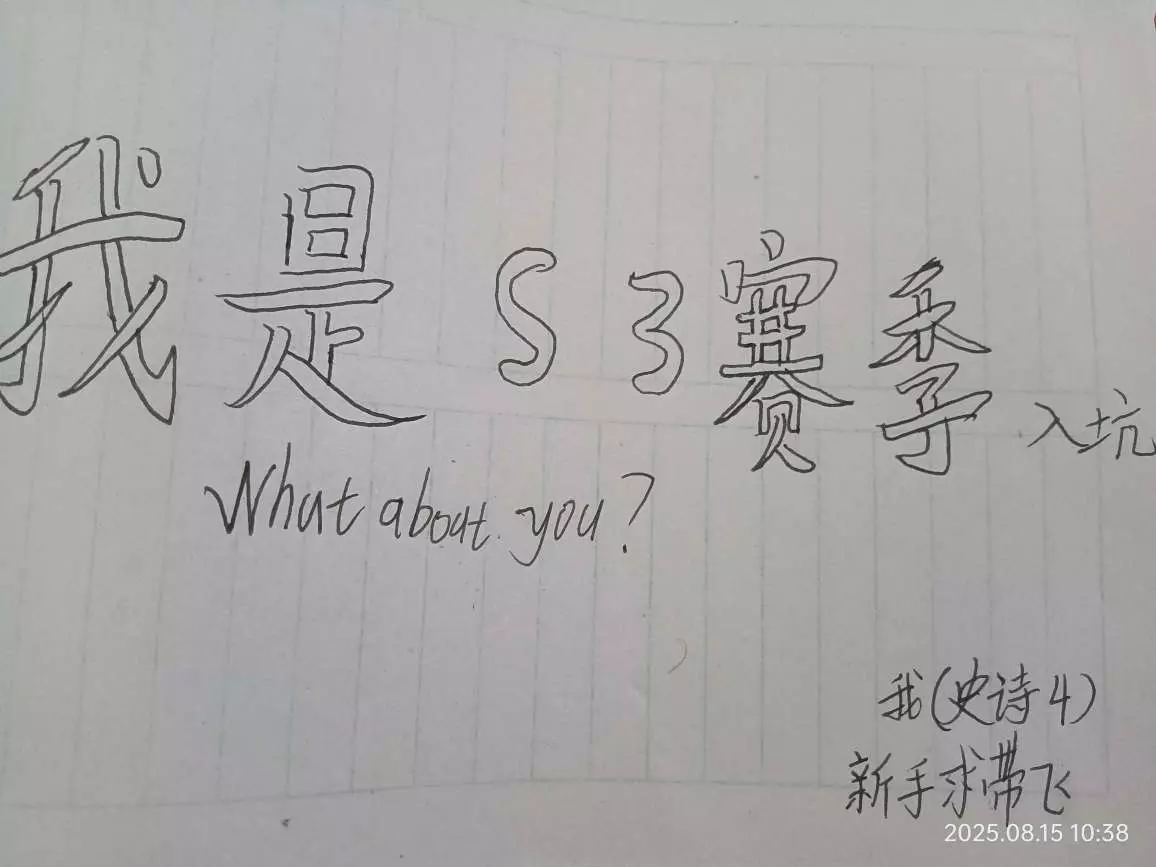 我是S3赛季入坑
What about you?
我(史诗4)
新手求带飞
2025.08.15 10:38